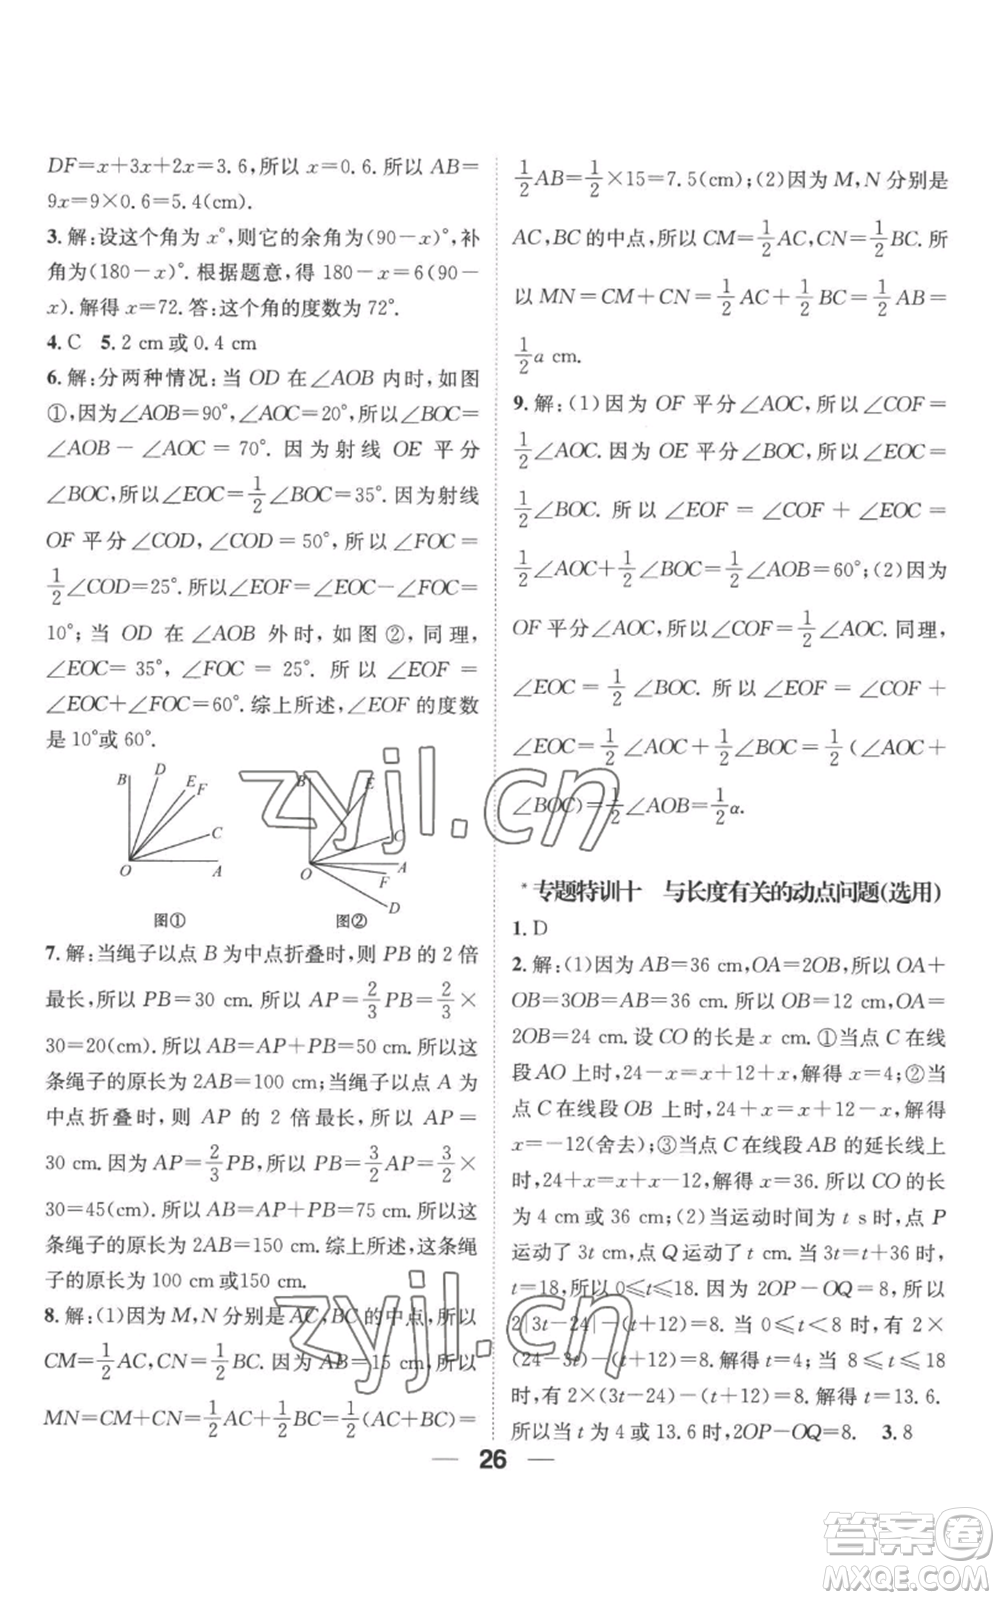 DF=x+3x+2x=3.6,所以 x=0.6.所以 AB=
9x=9×0.6=5.4(cm).
3.解:设这个角为 x°,则它的余角为(90-x)°,补
角为(180-x)°.根据题意,得 180-x=6(90-
x).解得 x=72.答:这个角的度数为 72°.
4.C 5.2 cm或0.4 cm
6.解:分两种情况:当 OD 在∠AOB 内时,如图
①,因为∠AOB=90°,∠AOC=20°,所以∠BOC=
∠AOB-∠AOC=70°.因为射线 OE 平分
∠BOC,所以∠EOC=1/2∠BOC=35°.因为射线
OF 平分∠COD,∠COD=50°,所以∠FOC=
1/2∠COD=25°.所以∠EOF=∠EOC-∠FOC=
10°;当 OD 在∠AOB 外时,如图②,同理,
∠EOC=35°,∠FOC=25°.所以∠EOF=
∠EOC+∠FOC=60°.综上所述,∠EOF的度数
是10°或60°.
B D E F C O A
B E C O A F D
图① 图②
7.解:当绳子以点 B 为中点折叠时,则 PB 的 2 倍
最长,所以 PB=30 cm.所以 AP=2/3PB=2/3×
30=20(cm).所以AB=AP+PB=50 cm.所以这
条绳子的原长为 2AB=100 cm;当绳子以点 A 为
中点折叠时,则 AP 的 2 倍最长,所以 AP=
30 cm.因为 AP=2/3PB,所以 PB=3/2AP=3/2×
30=45(cm).所以AB=AP+PB=75 cm.所以这
条绳子的原长为 2AB=150 cm.综上所述,这条绳
子的原长为 100 cm 或150 cm.
8.解:(1)因为M,N分别是AC,BC的中点,所以
CM=1/2AC,CN=1/2BC.因为AB=15 cm,所以
MN=CM+CN=1/2AC+1/2BC=1/2(AC+BC)=
1/2AB=1/2×15=7.5(cm);(2)因为 M,N 分别是
AC,BC 的中点,所以 CM=1/2AC,CN=1/2BC.所
以 MN=CM+CN=1/2AC+1/2BC=1/2AB=
1/2a cm.
9.解:(1)因为 OF 平分∠AOC,所以∠COF=
1/2∠AOC.因为 OE 平分∠BOC,所以∠EOC=
1/2∠BOC.所以∠EOF=∠COF+∠EOC=
1/2∠AOC+1/2∠BOC=1/2∠AOB=60°;(2)因为
OF平分∠AOC,所以∠COF=1/2∠AOC.同理,
∠EOC=1/2∠BOC.所以∠EOF=∠COF+
∠EOC=1/2∠AOC+1/2∠BOC=1/2(∠AOC+
∠BOC)=1/2∠AOB=1/2α.
*专题特训十 与长度有关的动点问题(选用)
1.D
2.解:(1)因为 AB=36 cm,OA=2OB,所以 OA+
OB=3OB=AB=36 cm.所以 OB=12 cm,OA=
2OB=24 cm.设 CO 的长是 x cm.①当点 C 在线
段AO上时,24-x=x+12+x,解得 x=4;②当
点 C 在线段 OB 上时,24+x=x+12-x,解得
x=-12(舍去);③当点 C 在线段 AB 的延长线上
时,24+x=x+x-12,解得 x=36.所以 CO 的长
为 4 cm 或 36 cm;(2)当运动时间为 t s时,点 P
运动了 3t cm,点 Q 运动了 t cm.当 3t=t+36 时,
t=18,所以 0≤t≤18.因为 2OP-OQ=8,所以
2|3t-24|-(t+12)=8.当 0≤t<8 时,有 2×
(24-3t)-(t+12)=8.解得 t=4;当 8≤t≤18
时,有 2×(3t-24)-(t+12)=8.解得 t=13.6.
所以当 t 为 4 或 13.6 时,2OP-OQ=8. 3.8
26
zyjl.cn
zyjl.cn
答案卷
MXQE.COM